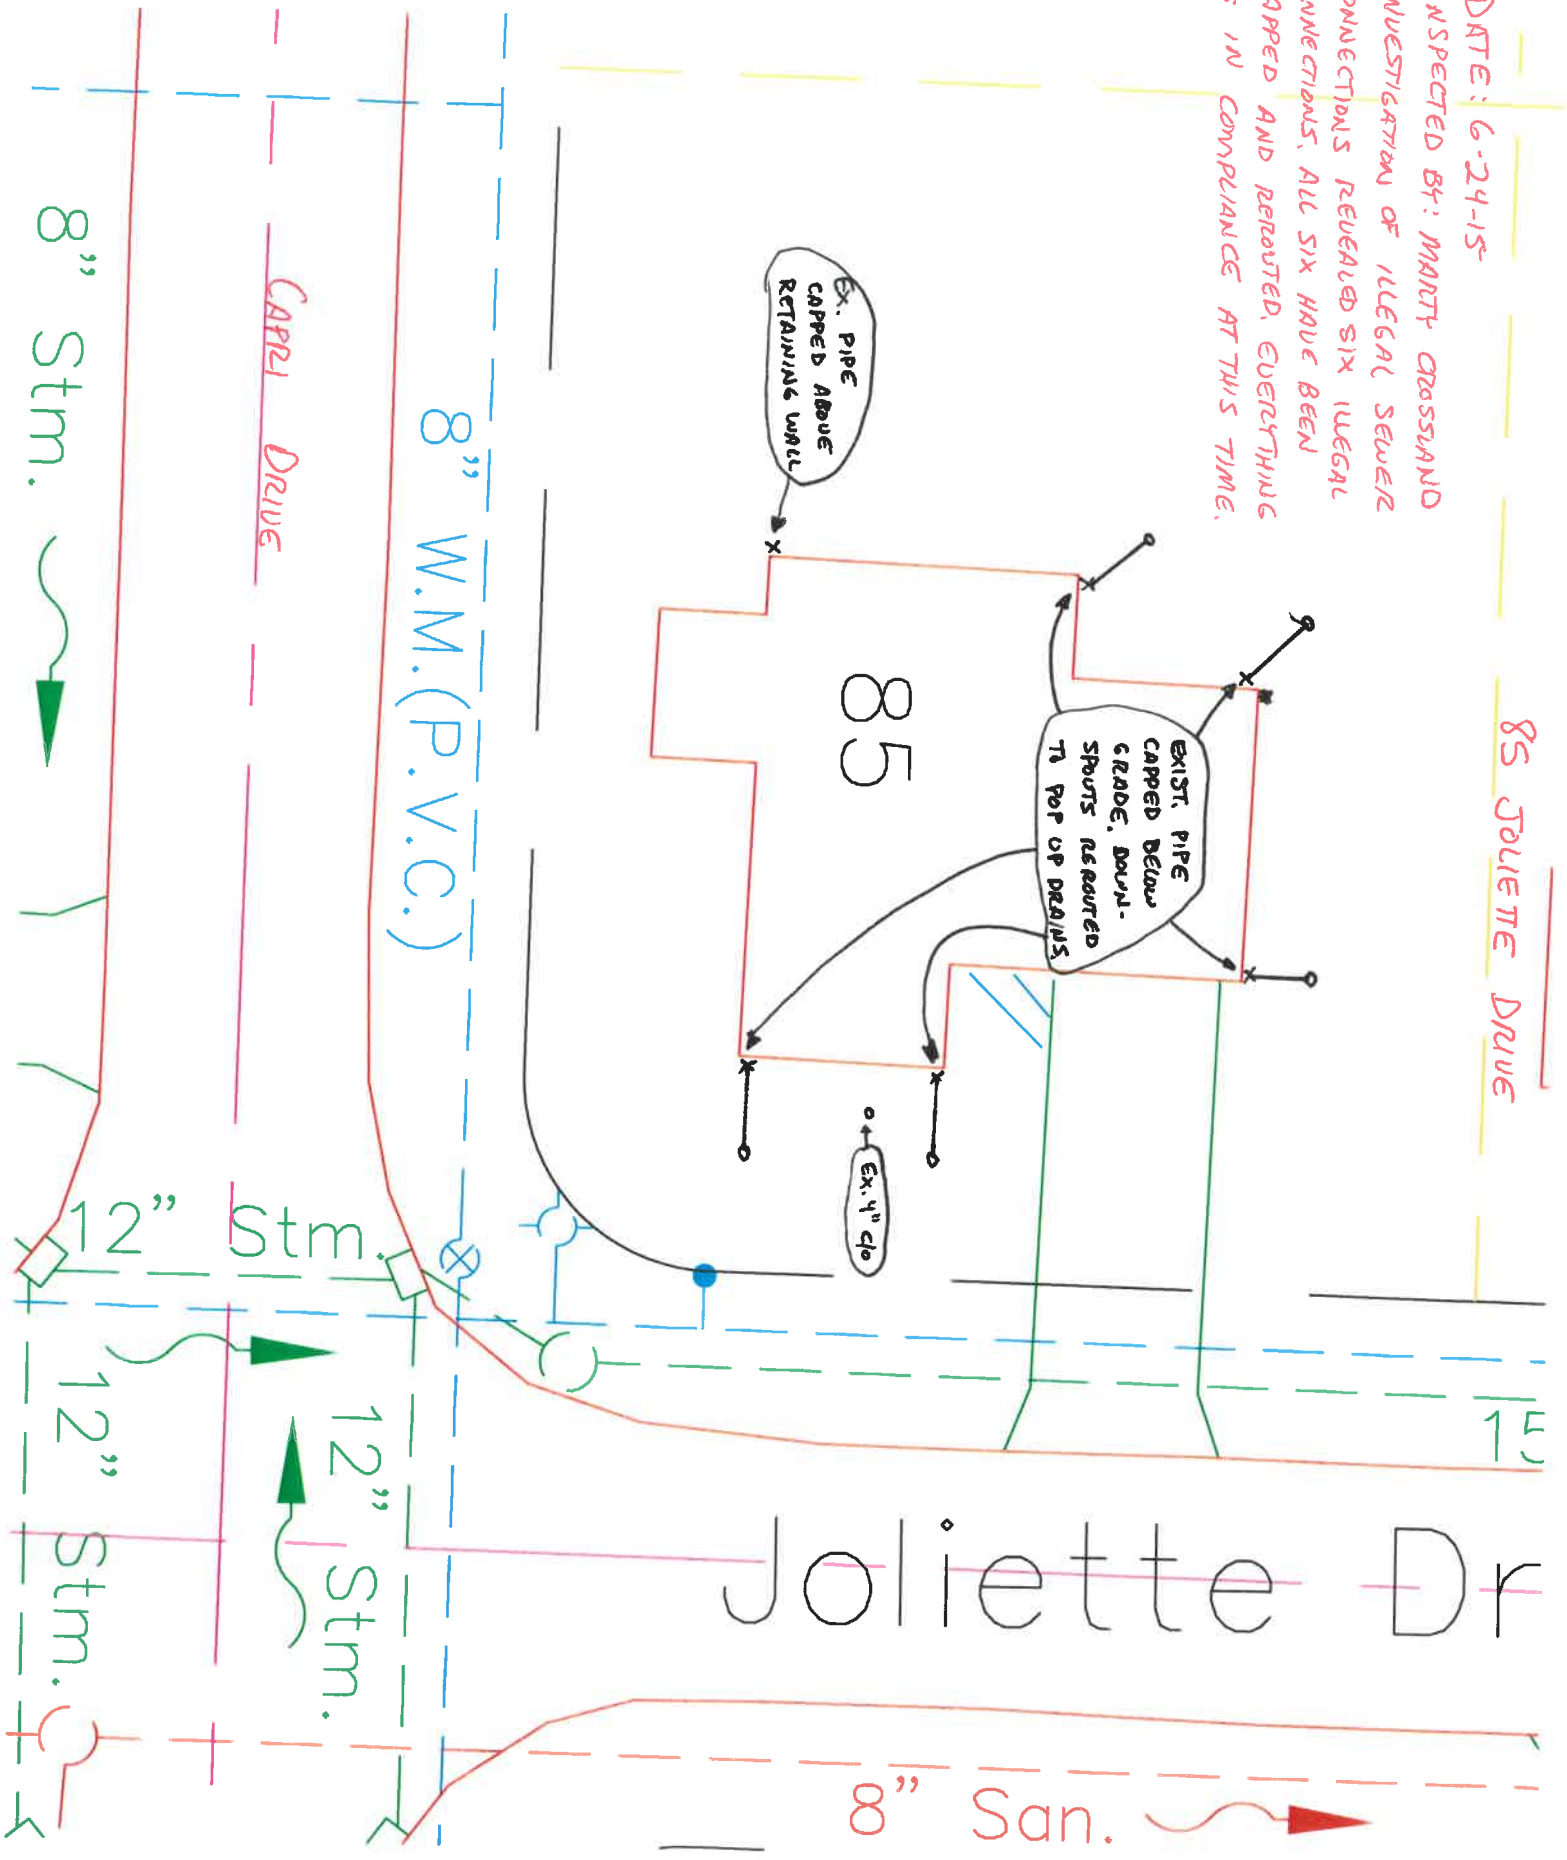 85 JOLIETTE DRIVE
DATE: 6-24-15
NSPECTED BY: MARTY CROSSLAND
NVESTIGATION OF ILLEGAL SEWER
ONNECTIONS REVEALED SIX ILLEGAL
NNECTIONS. ALL SIX HAVE BEEN
APPED AND REROUTED. EVERYTHING
S IN COMPLIANCE AT THIS TIME.
EX. PIPE
CAPPED ABOVE
RETAINING WALL
EXIST. PIPE
CAPPED BELOW
GRADE. DOWN-
SPOUTS REROUTED
TO POP UP DRAINS.
85
EX. 4" C/O
8" W.M.(P.V.C.)
CAPRI DRIVE
8" Stm.
12" Stm.
12" Stm.
12" Stm.
15
Joliette Dr
8" San.